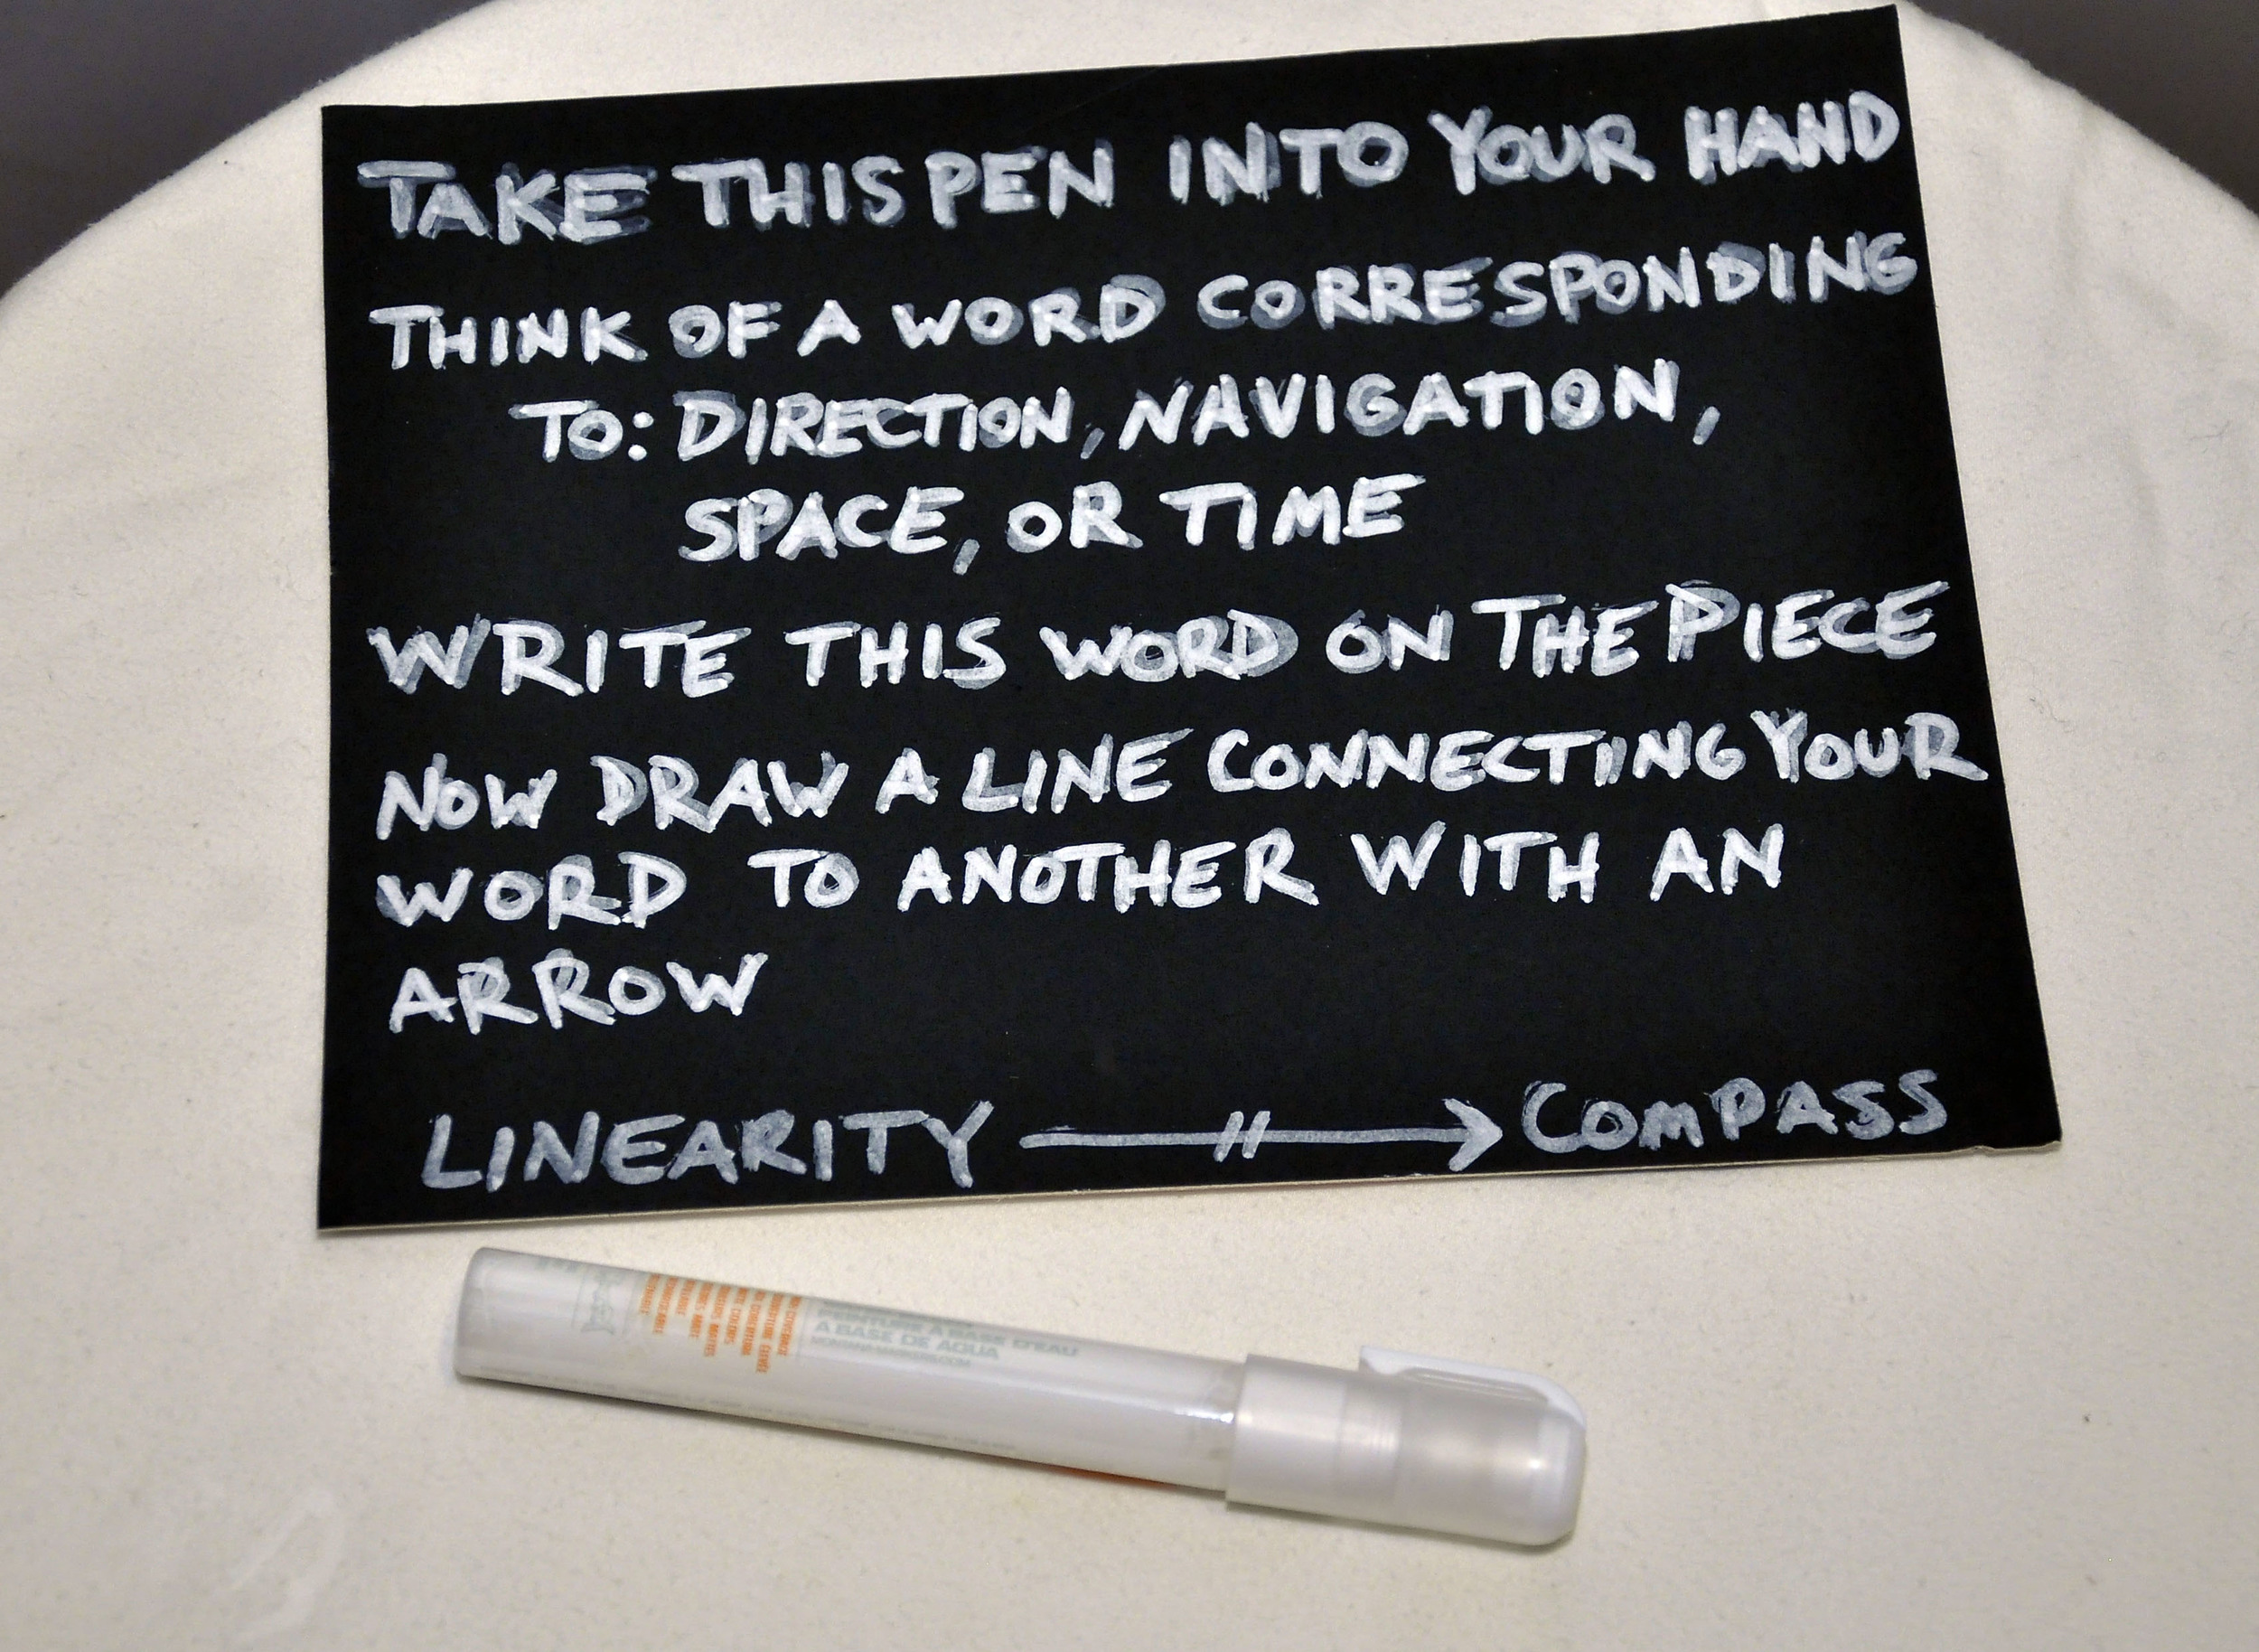 TAKE THIS PEN INTO YOUR HAND
THINK OF A WORD CORRESPONDING
TO: DIRECTION, NAVIGATION,
SPACE, OR TIME
WRITE THIS WORD ON THE PIECE
NOW DRAW A LINE CONNECTING YOUR
WORD TO ANOTHER WITH AN
ARROW
LINEARITY → COMPASS
PEINTURE À BASE D'EAU
A BASE DE AGUA